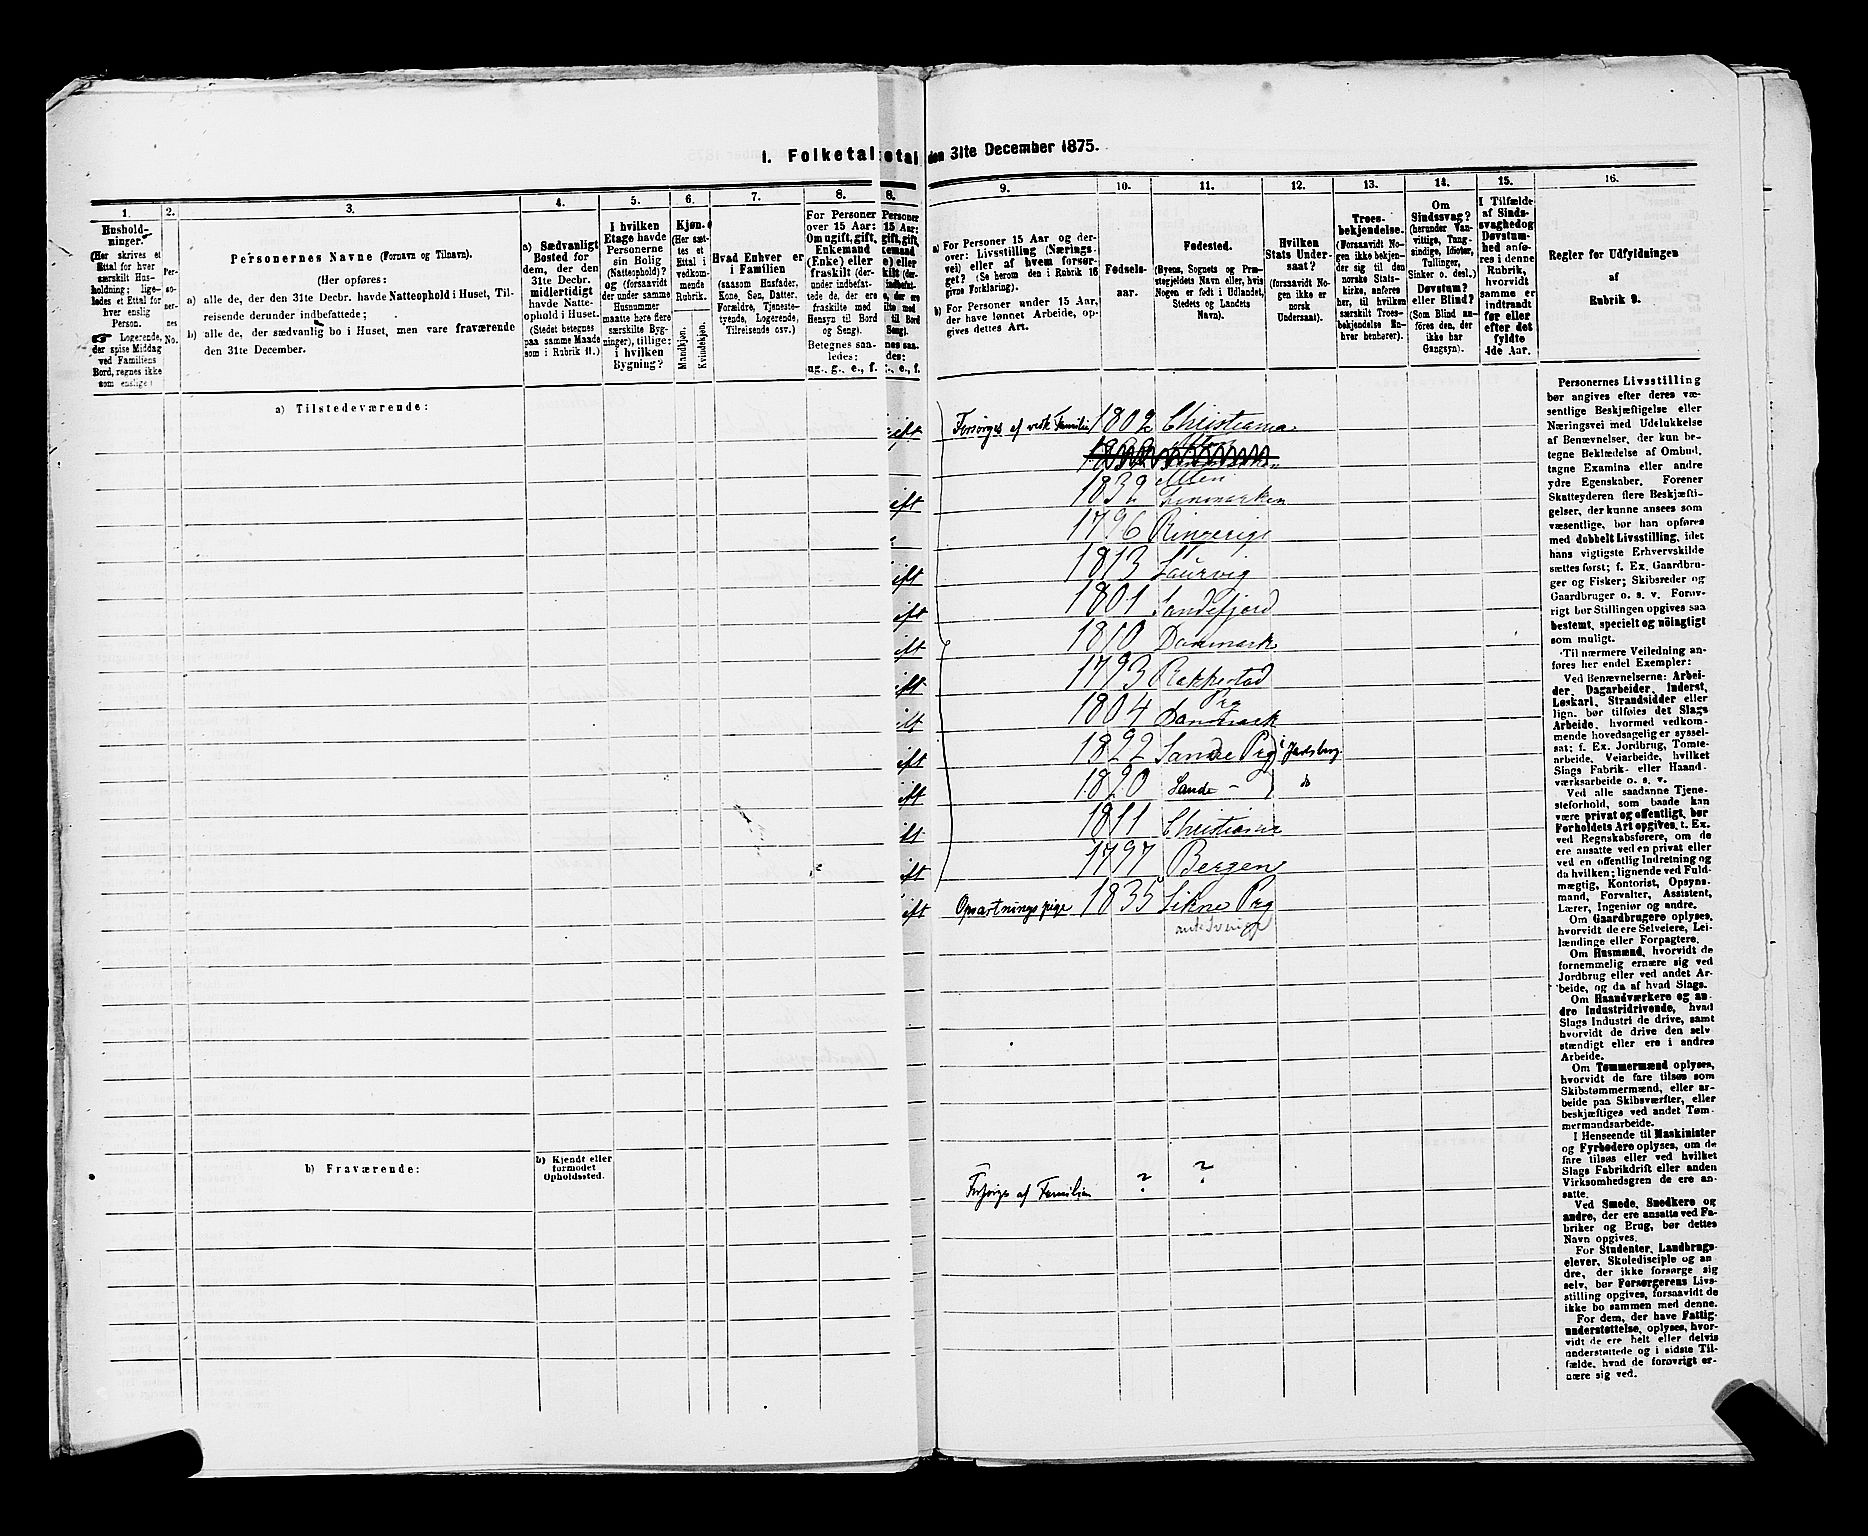 1. Folketal etal den 31te December 1875.
1.
2.
3.
4.
5.
6.
7.
8.
8.
9.
10.
11.
12.
13.
14.
15.
16.
Hushold-
ninger.
(Her skrives et
Ettal for hver
særskilt Hus-
holdning; lige-
ledes et Ettal for
hver enslig
Person.
☞ Logerende,
der spise Middag
ved Familiens
Bord, regnes ikke
som enslige)
Per-
so-
ner-
nes
No.
Personernes Navne (Fornavn og Tilnavn).
(Her opføres:
a) alle de, der den 31te Decbr. havde Natteophold i Huset, Til-
reisende derunder indbefattede;
b) alle de, der sædvanlig bo i Huset, men vare fraværende
den 31te December.
a) Sædvanligt
Bosted for
dem, der den
31te Decbr.
midlertidigt
havde Natte-
ophold i Huset.
(Stedet betegnes
paa samme Maade
som i Rubrik 11.)
I hvilken
Etage havde
Personerne
sin Bolig
(Natteophold)?
og (forsaavidt
der under samme
Husnummer
maatte høre flere
særskilte Byg-
ninger), tillige:
i hvilken
Bygning?
Kjøn.
(Her sæt-
tes et
Ettal i
vedkom-
mende
Rubrik.
Mandkjøn.
Kvindekjøn.
Hvad Enhver er
i Familien
(saasom Husfader,
Kone, Søn, Datter,
Forældre, Tjeneste-
tyende, Logerende,
Tilreisende osv.)
For Personer
over 15 Aar:
Om ugift, gift,
Enkemand
(Enke) eller
fraskilt (der-
under indbefat-
tede de, der ere
fraskilte med
Hensyn til Bord
og Seng).
Betegnes saa-
ledes:
ug., g., e., f.
Personer
15 Aar:
gift, gift,
kemand
e) eller
kilt (der-
indbefat-
de, der ere
ilte med
til Bord
Seng).
nes saa-
des:
., e., f.
a) For Personer 15 Aar og der-
over: Livsstilling (Nærings-
vei) eller af hvem forsør-
get? (Se herom den i Rubrik 16
givne Forklaring).
b) For Personer under 15 Aar,
der have lønnet Arbeide, op-
gives dettes Art.
Fødsels-
aar.
Fødested.
(Byens, Sognets og Præ-
stegjeldets Navn eller, hvis
Nogen er født i Udlandet,
Stedets og Landets
Navn).
Hvilken
Stats Under-
saat?
(forsaavidt No-
gen ikke er
norsk
Undersaat).
Troes-
bekjendelse.
(Forsaavidt No-
gen ikke bekjen-
der sig til den
norske Stats-
kirke, anføres
her, til hvilken
særskilt Troes-
bekjendelse En-
hver henhører).
Om
Sindssvag?
(herunder Van-
vittige, Tung-
sindige, Idioter,
Tullinger,
Sinker o. desl.)
Døvstum?
eller Blind?
(Som Blind an-
føres den, der
ikke har
Gangsyn).
I Tilfælde
af Sinds-
svaghed og
Døvstum-
hed anfø-
res i denne
Rubrik,
hvorvidt
samme er
indtraadt
før eller
efter det
fyldte
4de Aar.
Regler for Udfyldningen
af
Rubrik 9.
a) Tilstedeværende:
ift Forsørges af vedk Familie 1802 Christiania
Alten
ift 1832 Finmarken
1796 Ringerige
ift 1813 Laurvig
ift 1801 Sandefjord
ift 1810 Danmark
ift 1793 Rakkestad
Prg
ift 1804 Danmark
ift 1822 Sande Prg i Jarlsberg
ift 1820 Sande - do
ift 1811 Christiania
ift 1797 Bergen
ift Opvartningspige 1835
b) Fraværende:
b) Kjendt eller
formodet
Opholdssted.
Forsørges af Familien ? ?
Personernes Livsstilling
bør angives efter deres væ-
sentlige Beskjæftigelse eller
Næringsvei med Udelukkelse
af Benævnelser, der kun be-
tegne Beklædelse af Ombud,
tagne Examina eller andre
ydre Egenskaber. Forener
Skatteyderen flere Beskjæfti-
gelser, der kunne ansees som
væsentlige, bør han opføres
med dobbelt Livsstilling, idet
hans vigtigste Erhvervskilde
sættes først; f. Ex. Gaardbru-
ger og Fisker; Skibsreder og
Gaardbruger o. s. v. Forøv-
rigt bør Stillingen opgives saa
bestemt, specielt og nöiagtigt
som muligt.
Til nærmere Veiledning an-
føres her endel Exempler:
Ved Benævnelserne: Arbei-
der, Dagarbeider, Inderst,
Løskarl, Strandsidder eller
lign. bør tilføies det Slags
Arbeide, hvormed vedkom-
mende hovedsagelig er syssel-
sat; f. Ex. Jordbrug, Tomte-
arbeide, Veiarbeide, hvilket
Slags Fabrik- eller Haand-
værksarbeide o. s. v.
Ved alle saadanne Tjene-
steforhold, som baade kan
være privat og offentligt, bør
Forholdets Art opgives, t. Ex.
ved Regnskabsførere, om de
ere ansatte ved en privat eller
ved en offentlig Indretning og
da hvilken; lignende ved Fuld-
mægtig, Kontorist, Opsyns-
mand, Forvalter, Assistent,
Lærer, Ingeniør og andre.
Om Gaardbrugere oplyses,
hvorvidt de ere Selveiere, Lei-
lændinge eller Forpagtere.
Om Husmænd, hvorvidt de
fornemmelig ernære sig ved
Jordbrug eller ved andet Ar-
beide, og da af hvad Slags.
Om Haandværkere og an-
dre Industridrivende, hvad
Slags Industri de drive, samt
hvorvidt de drive den selv-
stændigt eller ere i andres
Arbeide.
Om Tømmermænd oplyses,
hvorvidt de fare tilsøs som
Skibstømmermænd, eller ar-
beide paa Skibsværfter, eller
beskjæftiges ved andet Tøm-
mermandsarbeide.
I Henseende til Maskinister
og Fyrbødere oplyses, om de
fare tilsøs eller ved hvilket
Slags Fabrikdrift eller anden
Virksomhedsgren de ere an-
satte.
Ved Smede, Snedkere og
andre, der ere ansatte ved Fa-
briker og Brug, bør dettes
Navn opgives.
For Studenter, Landbrugs-
elever, Skoledisciple og an-
dre, der ikke forsørge sig
selv, bør Forsørgerens Livs-
stilling opgives, forsaavidt de
ikke bo sammen med denne.
For dem, der have Fattig-
understøttelse, oplyses, hvor-
vidt de ere helt eller delvis
understøttede og i sidste Til-
fælde, hvad de forøvrigt er-
nære sig ved.